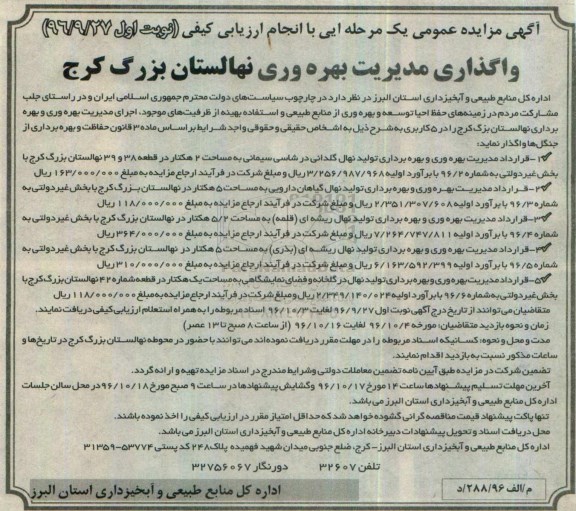 آگهی مزایده عمومی یک مرحله ایی با انجام ارزیابی کیفی (نوبت اول ۹۶/۹/۲۷)
واگذاری مدیریت بهره وری نهالستان بزرگ کرج
اداره کل منابع طبیعی و آبخیزداری استان البرز در نظر دارد در چارچوب سیاست‌های دولت محترم جمهوری اسلامی ایران و در راستای جلب
مشارکت مردم در زمینه‌های حفظ احیا توسعه و بهره وری از منابع طبیعی و استفاده بهینه از ظرفیت‌های موجود، اجرای مدیریت بهره وری و بهره
برداری نهالستان بزرگ کرج را در ۵ کاربری به شرح ذیل به اشخاص حقیقی و حقوقی واجد شرایط بر اساس ماده ۳ قانون حفاظت و بهره برداری از
جنگلها واگذار نماید:
۱- قرارداد مدیریت بهره وری و بهره برداری تولید نهال گلدانی در شاسی سیمانی به مساحت ۲ هکتار در قطعه ۳۸ و ۳۹ نهالستان بزرگ کرج با
بخش غیر دولتی به شماره ۹۶/۲ با برآورد اولیه ۳/۲۵۶/۹۸۷/۹۶۸ ریال و مبلغ شرکت در فرآیند ارجاع مزایده به مبلغ ۱۶۳/۰۰۰/۰۰۰ ریال
۲- قرارداد مدیریت بهره وری و بهره برداری تولید نهال گیاهان دارویی به مساحت ۵ هکتار در نهالستان بزرگ کرج با بخش غیر دولتی به
شماره ۹۶/۳ با برآورد اولیه ۲/۳۵۱/۳۰۷/۶۰۸ ریال و مبلغ شرکت در فرآیند ارجاع مزایده به مبلغ ۱۱۸/۰۰۰/۰۰۰ ریال
۳- قرارداد مدیریت بهره وری و بهره برداری تولید نهال ریشه ای (قلمه) به مساحت ۵/۲ هکتار در نهالستان بزرگ کرج با بخش غیر دولتی به
شماره ۹۶/۴ با برآورد اولیه ۷/۲۶۴/۷۴۷/۸۱۱ ریال و مبلغ شرکت در فرآیند ارجاع مزایده به مبلغ ۳۶۴/۰۰۰/۰۰۰ ریال
۴- قرارداد مدیریت بهره وری و بهره برداری تولید نهال ریشه ای (بذری) به مساحت ۵ هکتار در نهالستان بزرگ کرج با بخش غیر دولتی به
شماره ۹۶/۵ با برآورد اولیه ۶/۱۶۳/۵۹۲/۳۹۹ ریال و مبلغ شرکت در فرآیند ارجاع مزایده به مبلغ ۳۱۰/۰۰۰/۰۰۰ ریال
۵- قرارداد مدیریت بهره وری و بهره برداری تولید نهال در گلخانه و فضای نمایشگاهی به مساحت یک هکتار در قطعه شماره ۴۲ نهالستان بزرگ کرج با
بخش غیر دولتی به شماره ۹۶/۶ با برآورد اولیه ۲/۳۴۹/۱۴۰/۰۲۴ ریال و مبلغ شرکت در فرآیند ارجاع مزایده به مبلغ ۱۱۸/۰۰۰/۰۰۰ ریال
متقاضیان می توانند از تاریخ درج آگهی نوبت اول ۹۶/۹/۲۷ لغایت ۹۶/۱۰/۳ اسناد مربوطه را به همراه استعلام ارزیابی کیفی دریافت نمایند.
زمان و نحوه بازدید متقاضیان: مورخه ۹۶/۱۰/۴ لغایت ۹۶/۱۰/۱۶ (از ساعت ۸ صبح تا ۱۳ عصر)
مدت و محل و نحوه: کسانیکه اسناد مربوطه را در مهلت مقرر دریافت نموده اند می توانند با حضور در محوطه نهالستان بزرگ کرج در تاریخ‌ها و
ساعات مذکور نسبت به بازدید اقدام نمایند.
تضمین شرکت در مزایده طبق آیین نامه تضمین معاملات دولتی و شرایط مندرج در اسناد مزایده تهیه و ارائه گردد.
آخرین مهلت تسلیم پیشنهادها ساعت ۱۴ مورخ ۹۶/۱۰/۱۷ و گشایش پیشنهادها در ساعت ۹ صبح مورخ ۹۶/۱۰/۱۸ در محل سالن جلسات
اداره کل منابع طبیعی و آبخیزداری استان البرز می باشد.
تنها پاکت پیشنهاد قیمت مناقصه گرانی گشوده خواهد شد که حداقل امتیاز مقرر در ارزیابی کیفی را اخذ نموده باشند.
محل دریافت اسناد و تحویل پیشنهادات دبیرخانه اداره کل منابع طبیعی و آبخیزداری استان البرز می باشد.
اداره کل منابع طبیعی و آبخیزداری استان البرز - کرج، ضلع جنوبی میدان شهید فهمیده پلاک ۲۴۸ کد پستی ۵۳۷۷۴-۳۱۳۵۹
تلفن ۳۲۶۰۷ دورنگار ۳۲۷۵۶۰۶۷
اداره کل منابع طبیعی و آبخیزداری استان البرز
م/الف ۲۸۸/۹۶/د